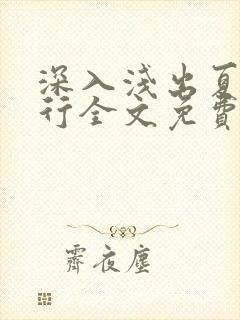 深入浅出夏
行全文免費
霽夜塵